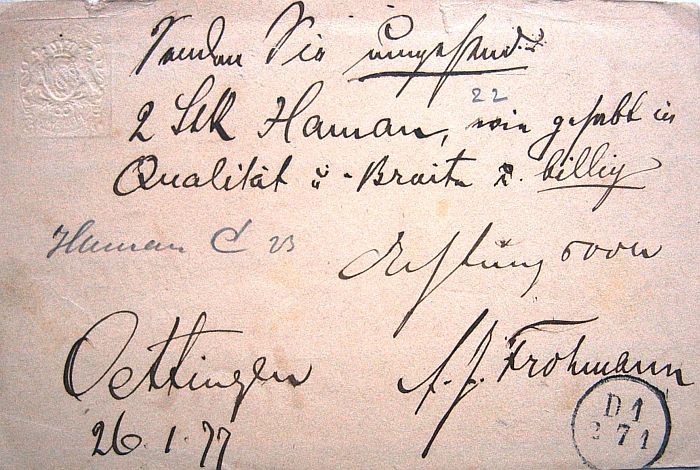 Senden Sie umgehend
22
2 Stk Haman, wie gehabt in
Qualität u. Breite z. billig
Haman C 23
Achtungsvoll
Oettingen
A. J. Frohmann
26.1.77
D 1
2 7 1